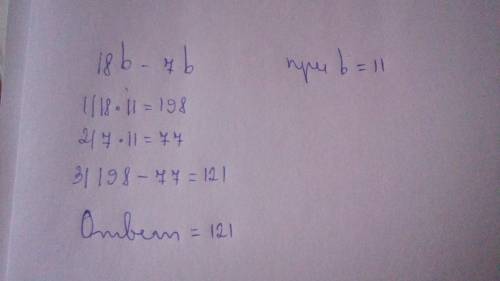 18b - 7b при b = 11
1) 18 · 11 = 198
2) 7 · 11 = 77
3) 198 - 77 = 121
Ответ = 121